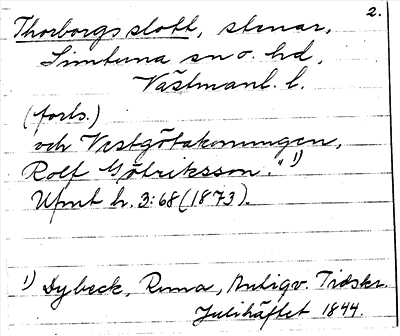 2.
Thorborgs slott, stenar,
Simtuna sn o. hd,
Västmanl. l.
(forts.)
och Vestgötakonungen,
Rolf Götriksson." 1)
Upmt h. 3:68 (1873).
1) Dybeck, Runa, Antiqv. Tidskr.
Julihäftet 1844.